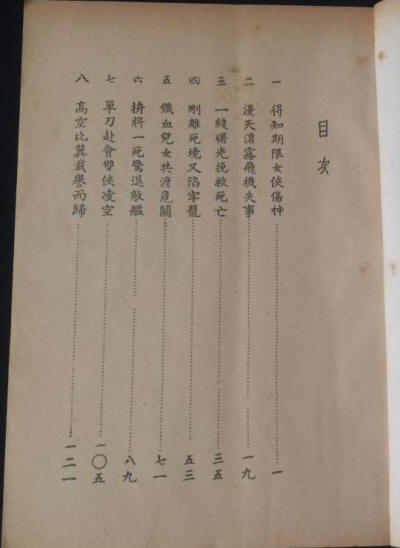 目次
一 得知期限女俠傷神……一
二 漫天濃霧飛機失事……一九
三 一綫曙光挽救死亡……三五
四 剛離死境又陷牢籠……五三
五 鐵血兒女共渡危關……七一
六 拚將一死驚退敵艦……八九
七 單刀赴會雙俠凌空……一〇五
八 高空比翼載譽而歸……一二一